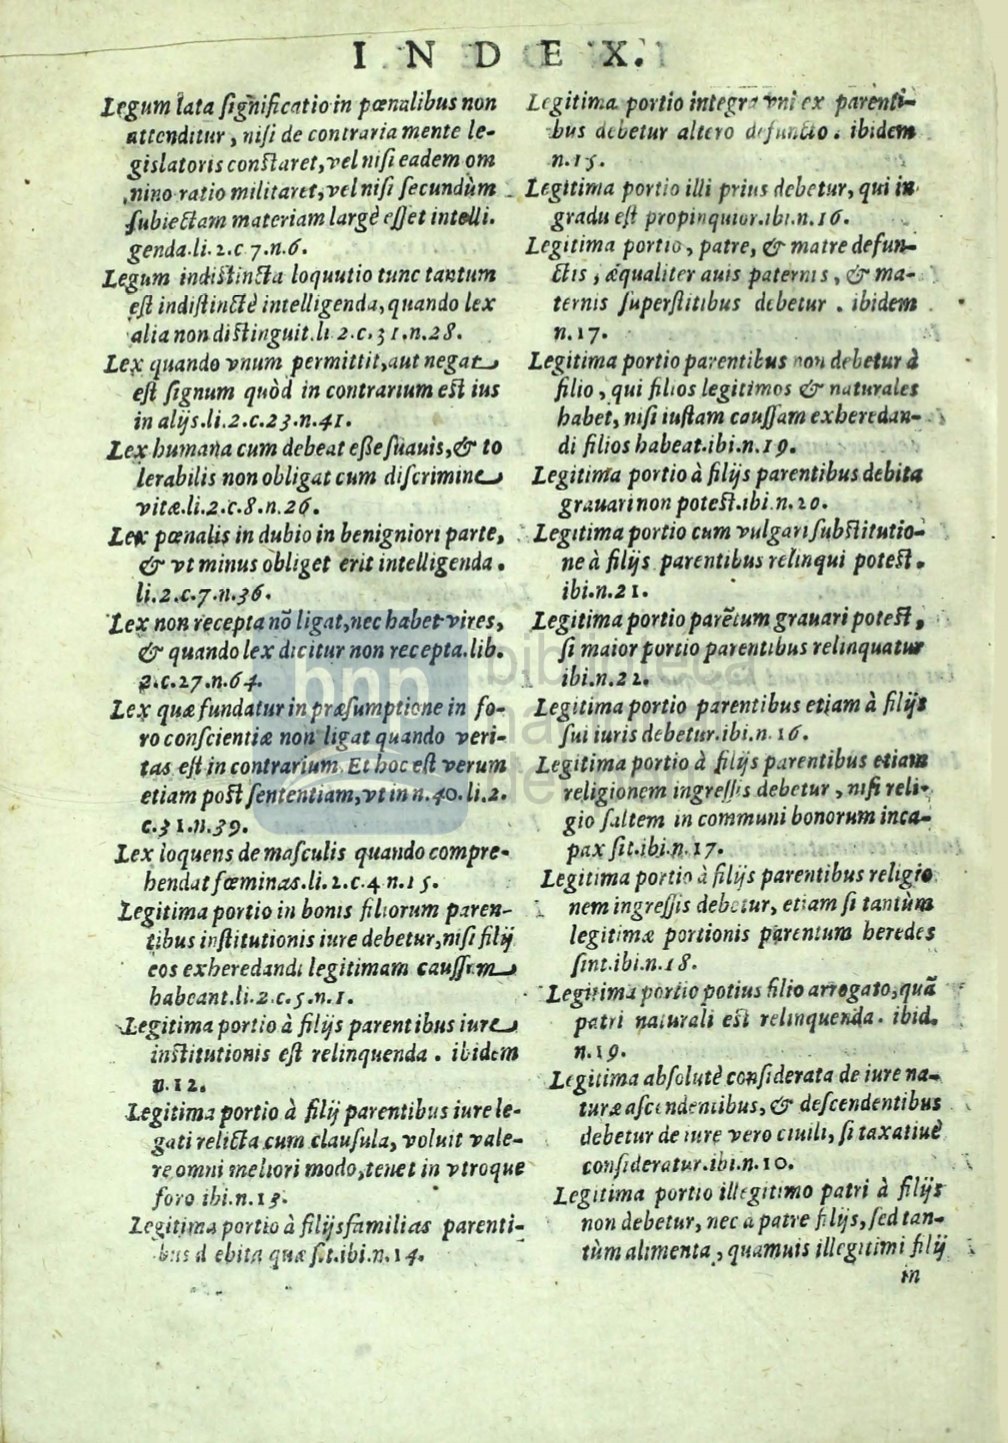 INDEX.
Legum lata ſignificatio in pœnalibus non
attenditur, niſi de contraria mente le-
gislatoris conſtaret, vel niſi eadem om
nino ratio militaret, vel niſi ſecundùm
ſubiectam materiam largè eſſet intelli.
genda.li.2.c 7.n.6.
Legum indiſtincta loquutio tunc tantum
eſt indiſtinctè intelligenda, quando lex
alia non diſtinguit.li 2.c.31.n.28.
Lex quando vnum permittit, aut negat
eſt ſignum quòd in contrarium eſt ius
in alijs.li.2.c.23.n.41.
Lex humana cum debeat eſſe ſuauis, & to
lerabilis non obligat cum diſcrimine
vitæ.li.2.c.8.n.26.
Lex pœnalis in dubio in benigniori parte,
& vt minus obliget erit intelligenda.
li.2.c.7.n.36.
Lex non recepta nõ ligat, nec habet vires,
& quando lex dicitur non recepta.lib.
2.c.27.n.64.
Lex quæ fundatur in præſumptione in fo-
ro conſcientiæ non ligat quando veri-
tas eſt in contrarium. Et hoc eſt verum
etiam poſt ſententiam, vt in n.40.li.2.
c.31.n.39.
Lex loquens de maſculis quando compre-
hendat fœminas.li.2.c.4 n.15.
Legitima portio in bonis filiorum paren-
tibus inſtitutionis iure debetur, niſi filij
eos exheredandi legitimam cauſſam
habeant.li.2.c.5.n.1.
Legitima portio à filijs parentibus iure
inſtitutionis eſt relinquenda. ibidem
n.12.
Legitima portio à filij parentibus iure le-
gati relicta cum clauſula, voluit vale-
re omni meliori modo, tenet in vtroque
foro ibi.n.13.
Legitima portio à filijsfamilias parenti-
bus d ebita quæ ſit.ibi.n.14.
Legitima portio integra vni ex parenti-
bus debetur altero defuncto. ibidem
n.15.
Legitima portio illi prius debetur, qui in
gradu eſt propinquior.ibi.n.16.
Legitima portio, patre, & matre defun-
ctis, æqualiter auis paternis, & ma-
ternis ſuperſtitibus debetur. ibidem
n.17.
Legitima portio parentibus non debetur à
filio, qui filios legitimos & naturales
habet, niſi iuſtam cauſſam exheredan-
di filios habeat.ibi.n.19.
Legitima portio à filijs parentibus debita
grauari non poteſt.ibi.n.20.
Legitima portio cum vulgari ſubſtitutio-
ne à filijs parentibus relinqui poteſt.
ibi.n.21.
Legitima portio parẽtum grauari poteſt,
ſi maior portio parentibus relinquatur
ibi.n.22.
Legitima portio parentibus etiam à filijs
ſui iuris debetur.ibi.n.16.
Legitima portio à filijs parentibus etiam
religionem ingreſſis debetur, niſi reli-
gio ſaltem in communi bonorum inca-
pax ſit.ibi.n.17.
Legitima portio à filijs parentibus religio
nem ingreſſis debetur, etiam ſi tantùm
legitimæ portionis parentum heredes
ſint.ibi.n.18.
Legitima portio potius filio arrogato, quã
patri naturali eſt relinquenda. ibid.
n.19.
Legitima abſolutè conſiderata de iure na-
turæ aſcendentibus, & deſcendentibus
debetur de iure vero ciuili, ſi taxatiuè
conſideratur.ibi.n.10.
Legitima portio illegitimo patri à filijs
non debetur, nec à patre filijs, ſed tan-
tùm alimenta, quamuis illegitimi filij
in